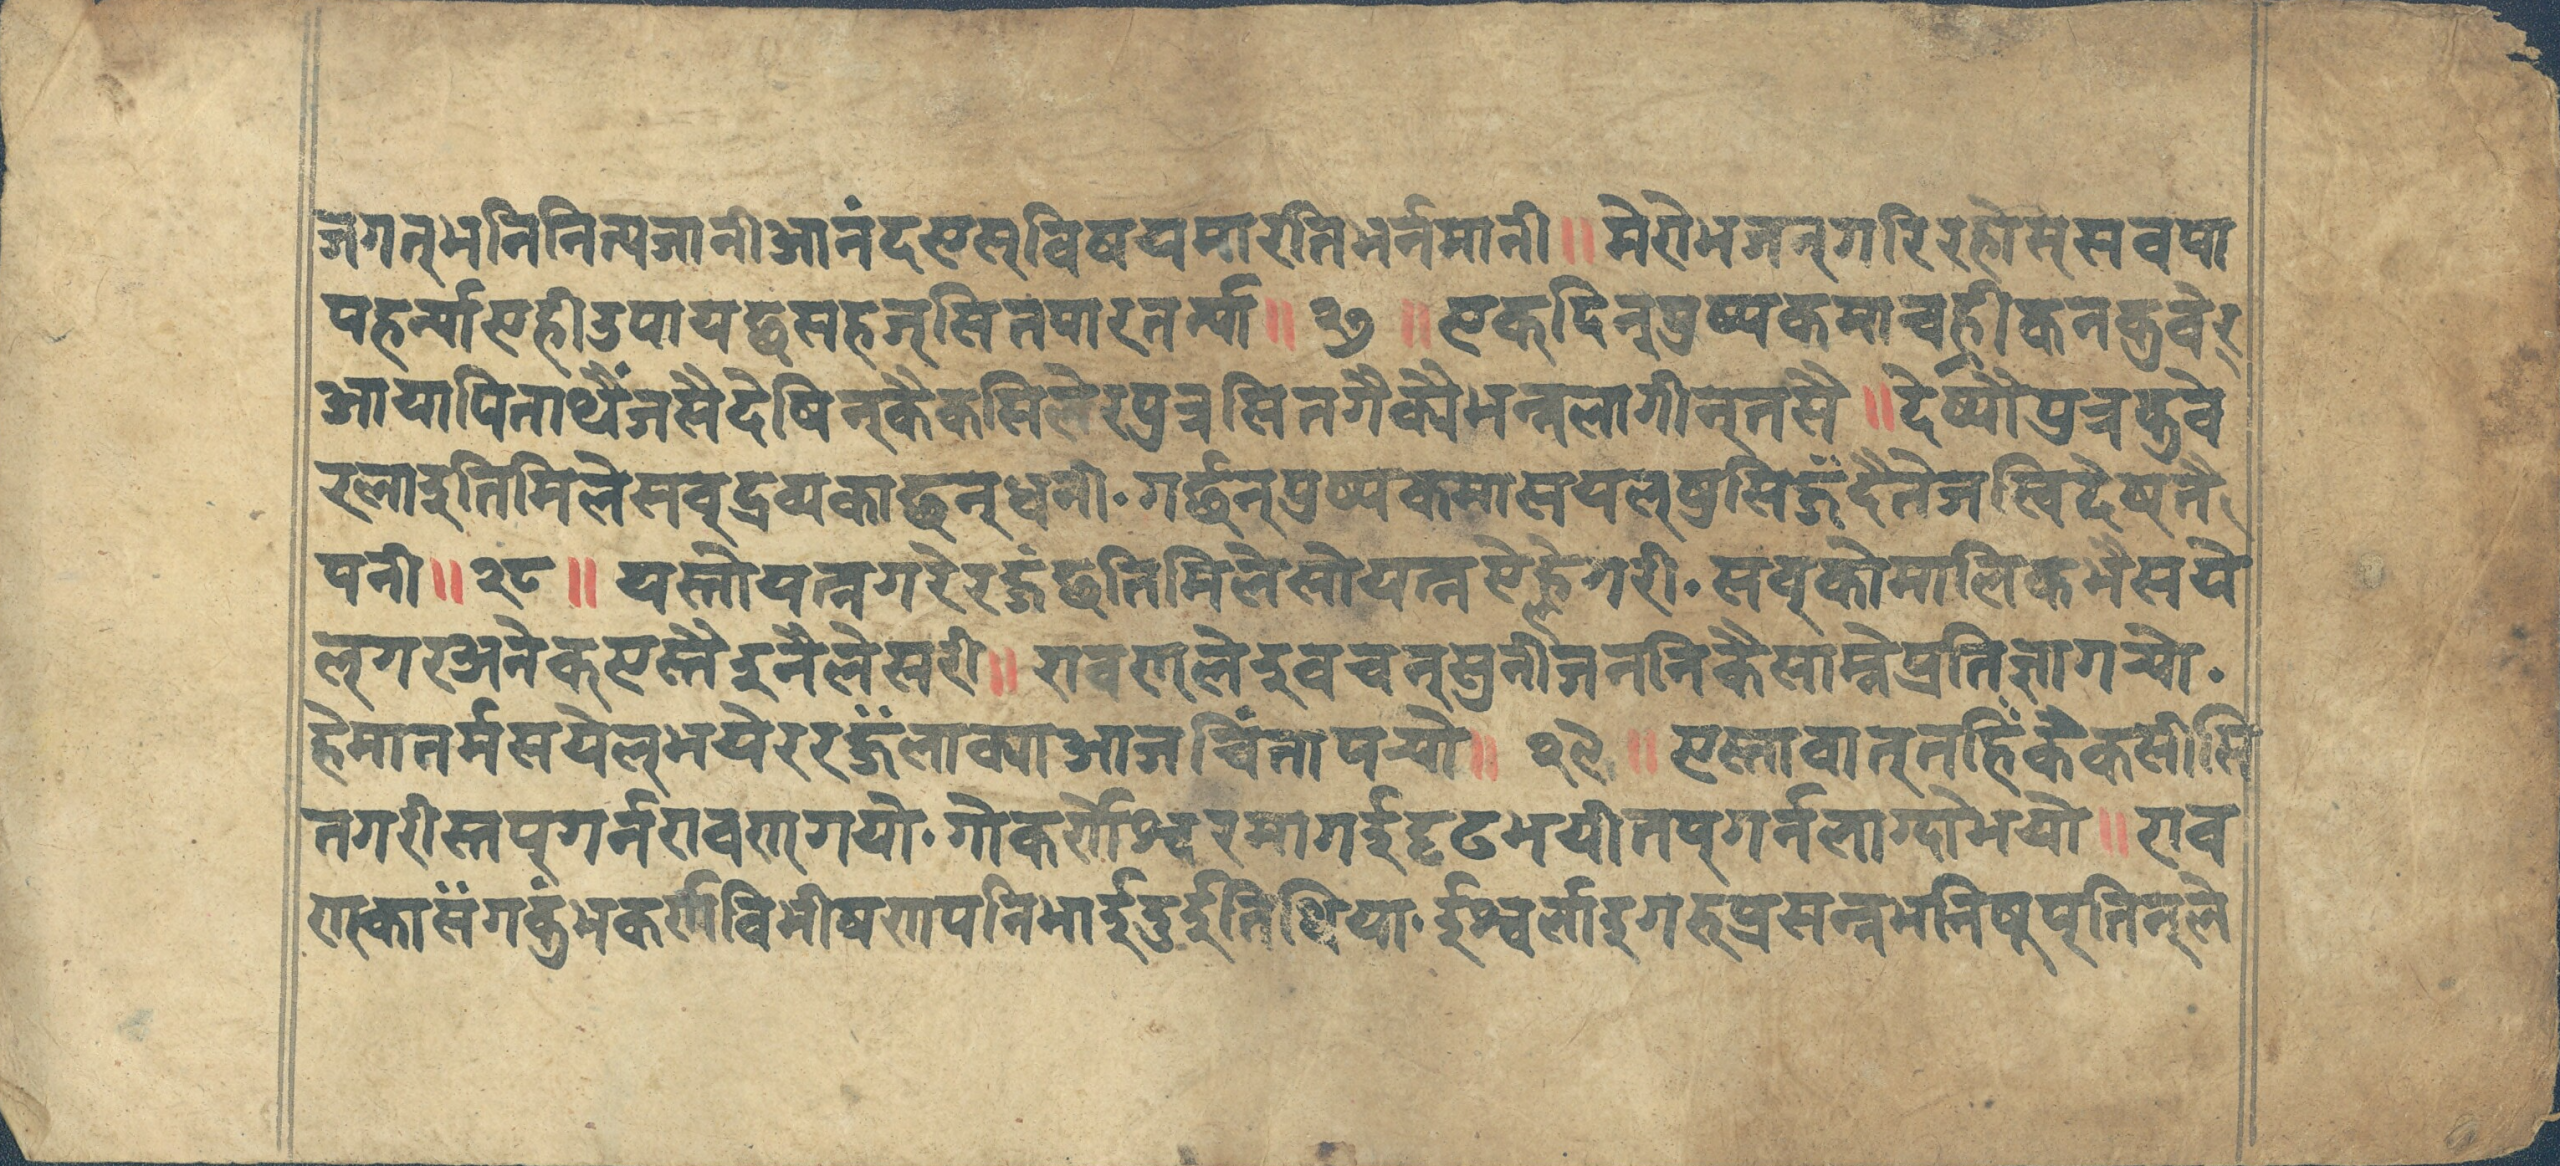 जगत्भनिनित्यजानीआनंदएस्विषयमारतिभर्नमानी॥मेरोभजन्गरिरहोस्सवपा
पहर्न्याएहीउपायछसहज्सितपारतर्न्या॥२७॥एक्दिन्पुष्पकमाचहीकनकुवेर्
आयापिताथैंजसैदेषिन्कैकसिलेरपुत्रसितगैक्यैभन्नलागीन्तसै॥देष्यौपुत्रकुवे
रलाइतिमिलेसवद्रव्यकाछन्धनी·गर्छन्पुष्पकमासयल्षुसिजँदैतेजस्विदेषनै
पनी॥२८॥यस्तोयत्नगरेरजँछतिमिलेसोयत्नऐह्रेगरी·सव्कोमालिकभैसये
ल्गरअनेक्एस्तैइनैलेसरी॥रावण्लेइवचन्सुनीजननिकैसाम्नेप्रतिज्ञागर्‍यो·
हेमातर्मसयेल्भयेररजँलाक्याआजचिंतापर्‍यो॥२९॥एस्तावात्नहिंकैकसीसि
तगरीस्तप्गर्नरावण्गयो·गोकर्णेश्वरमागईदृढभयीतप्गर्नलाग्दोभयो॥राव
ण्कासँगकुंभकर्णविभीषणपनिभाईदुईतिथिया·ईश्वर्लाइगरूप्रसन्नभनिषुप्तिन्ले